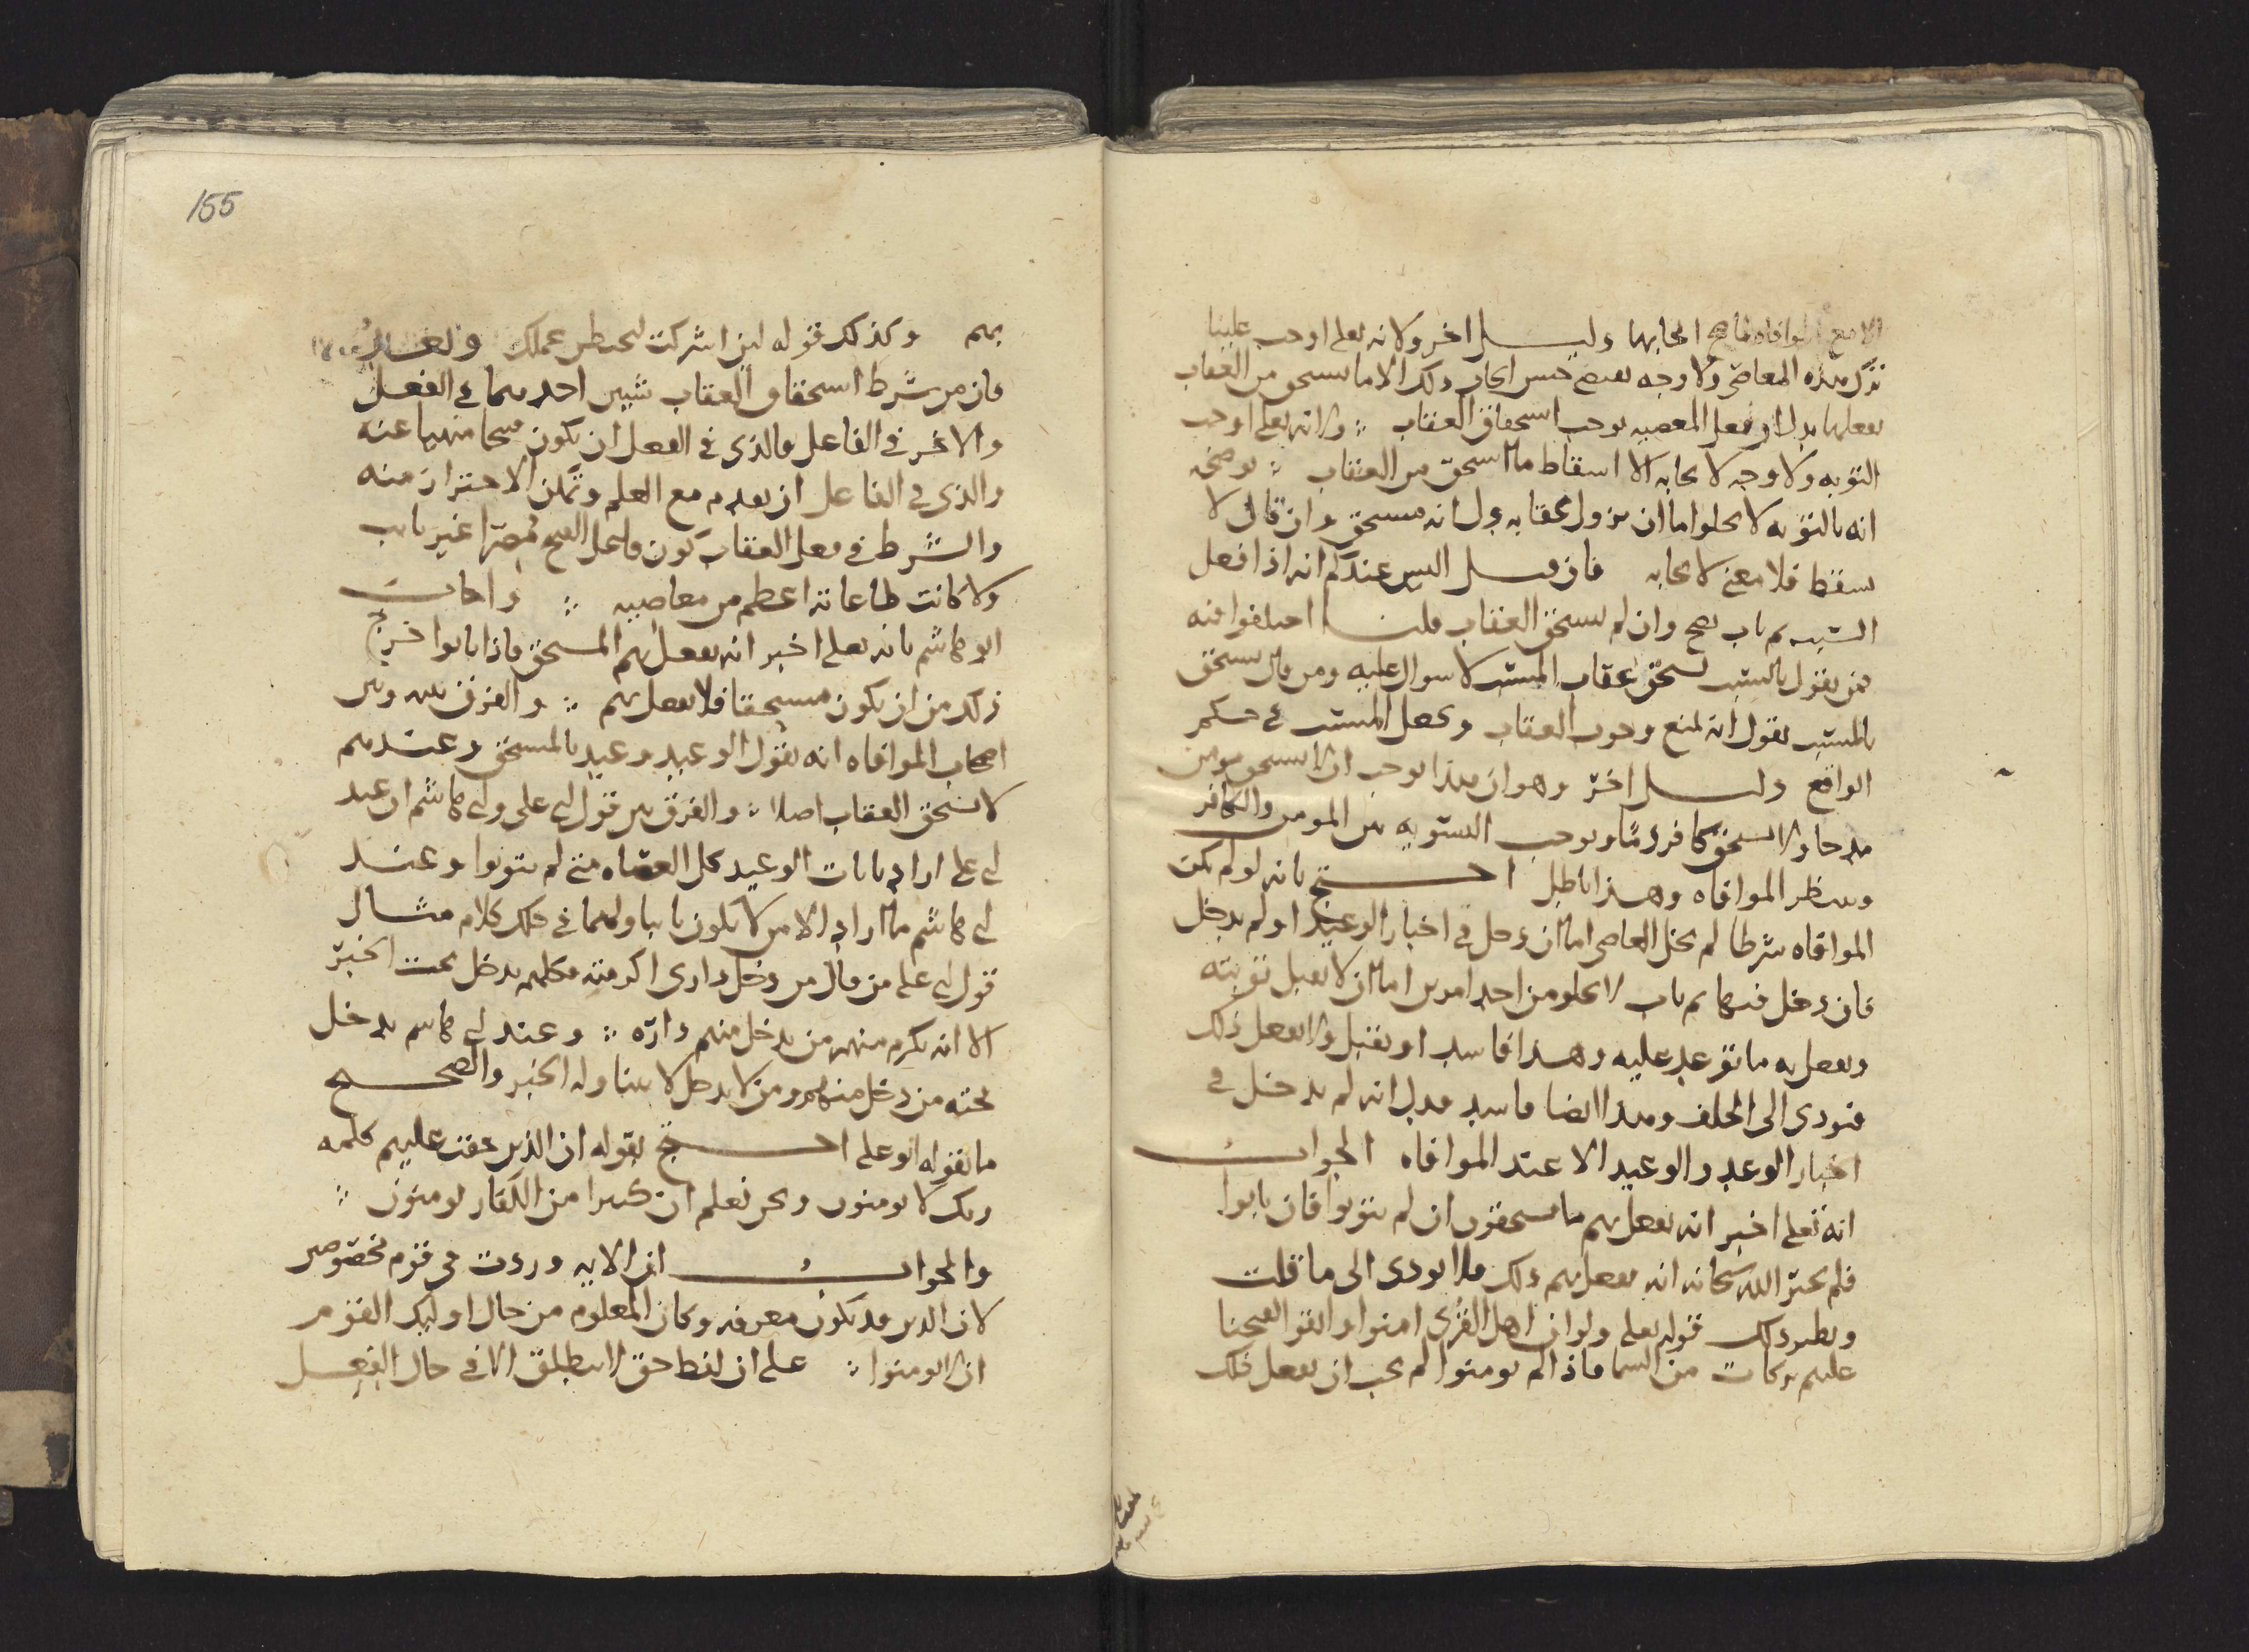 الا مع الموافاه لما صح ايجابها دليل اخر ولانه تعلى اوجب علينا
ترك هذه المعاصي ولا وجه يقتضي حسن ايجاب ذلك الا ما يستحق من العقاب
بفعلها فدل ان فعل المعصيه يوجب استحقاق العقاب ولانه تعلى اوجب
التوبه ولا وجه لايجابه الا اسقاط ما استحق من العقاب يوضحه
انه بالتوبه لا يخلوا اما ان يزول عقابه دل انه مستحق وان قال لا
سقط فلا معنى لايجابه فان قيل اليس عندكم انه اذا فعل
السبب ثم تاب صح وان لم يستحق العقاب قلنا اختلفوا فيه
فمن يقول بالسبب يستحق عقاب المسبب لا سوال عليه ومن قال يستحق
بالمسبب يقول انه لمنع وجوب العقاب ويجعل المسبب في حكم
الواقع دليل اخر وهو ان هذا يوجب ان لا يستحق مومن
مدحا ولا يستحق كافر ذما ويوجب التسويه بين المومن والكافر
وينتظر الموافاه وهذا باطل احتج بانه لو لم تكن
الموافاه شرطا لم يخل العاصي اما ان دخل في اخبار الوعيد او لم يدخل
فان دخل فيها ثم تاب لا يخلو من احد امرين اما ان لا يقبل توبته
ويفعل به ما توعد عليه وهذا فاسد او يقبل ولا يفعل ذلك
فتودي الى الخلف وهذا ايضا فاسد فدل انه لم يدخل في
اخبار الوعد والوعيد الا عند الموافاه الجواب
انه تعلى اخبر انه يفعل بهم ما يستحقون ان لم يتوبوا فان تابوا
فلم يخبر الله سبحانه انه يفعل بهم ذلك فلا يودي الى ما قلت
ونظير ذلك قوله تعلى ولو ان اهل القرى امنوا واتقوا لفتحنا
عليهم بركات من السما فاذا لم يومنوا لم يجب ان يفعل ذلك
155
بهم وكذلك قوله لين اشركت ليحبطن عملك
فان من شرط استحقاق العقاب شيين احدهما في الفعل
والاخر في الفاعل فالذي في الفعل ان يكون قبيحا منهيا عنه
والذي في الفاعل ان يقدم مع العلم وتمكن الاحتراز منه
والشرط في فعل العقاب كون فاعل القبيح مصرا غير تايب
ولا كانت طاعاته اعظم من معاصيه واجاب
ابو هاشم بانه تعلى اخبر انه يفعل بهم المستحق فاذا تابوا خرج
ذلك من ان يكون مستحقا فلا يفعل بهم والفرق بينه وبين
اصحاب الموافاه انه يقول الوعيد وعيد بالمستحق وعندهم
لا يستحق العقاب اصلا والفرق بين قول ابي علي وابي هاشم ان عند
ابي علي اراد بايات الوعيد كل العصاه متى لم يتوبوا وعند
ابي هاشم ما اراد الا من لا يكون تايبا ولهما في ذلك كلام مثال
قول ابي علي من قال من دخل داري اكرمته فكلهم يدخل تحت الخبر
الا انه يكرم منهم من يدخل منهم داره وعند ابي هاشم يدخل
تحته من دخل منهم ومن لا يدخل لا يتناوله الخبر والصحيح
ما يقوله ابو علي احتج بقوله ان الذين حقت عليهم كلمه
ربك لا يومنون ونحن نعلم ان كثيرا من الكفار يومنون
والجواب ان الايه وردت في قوم مخصوصين
لان الذين قد يكون معرفه وكان المعلوم من حال اوليك القوم
ان لا يومنوا على ان لفظ حق لا ينطلق الا في حال الفعل